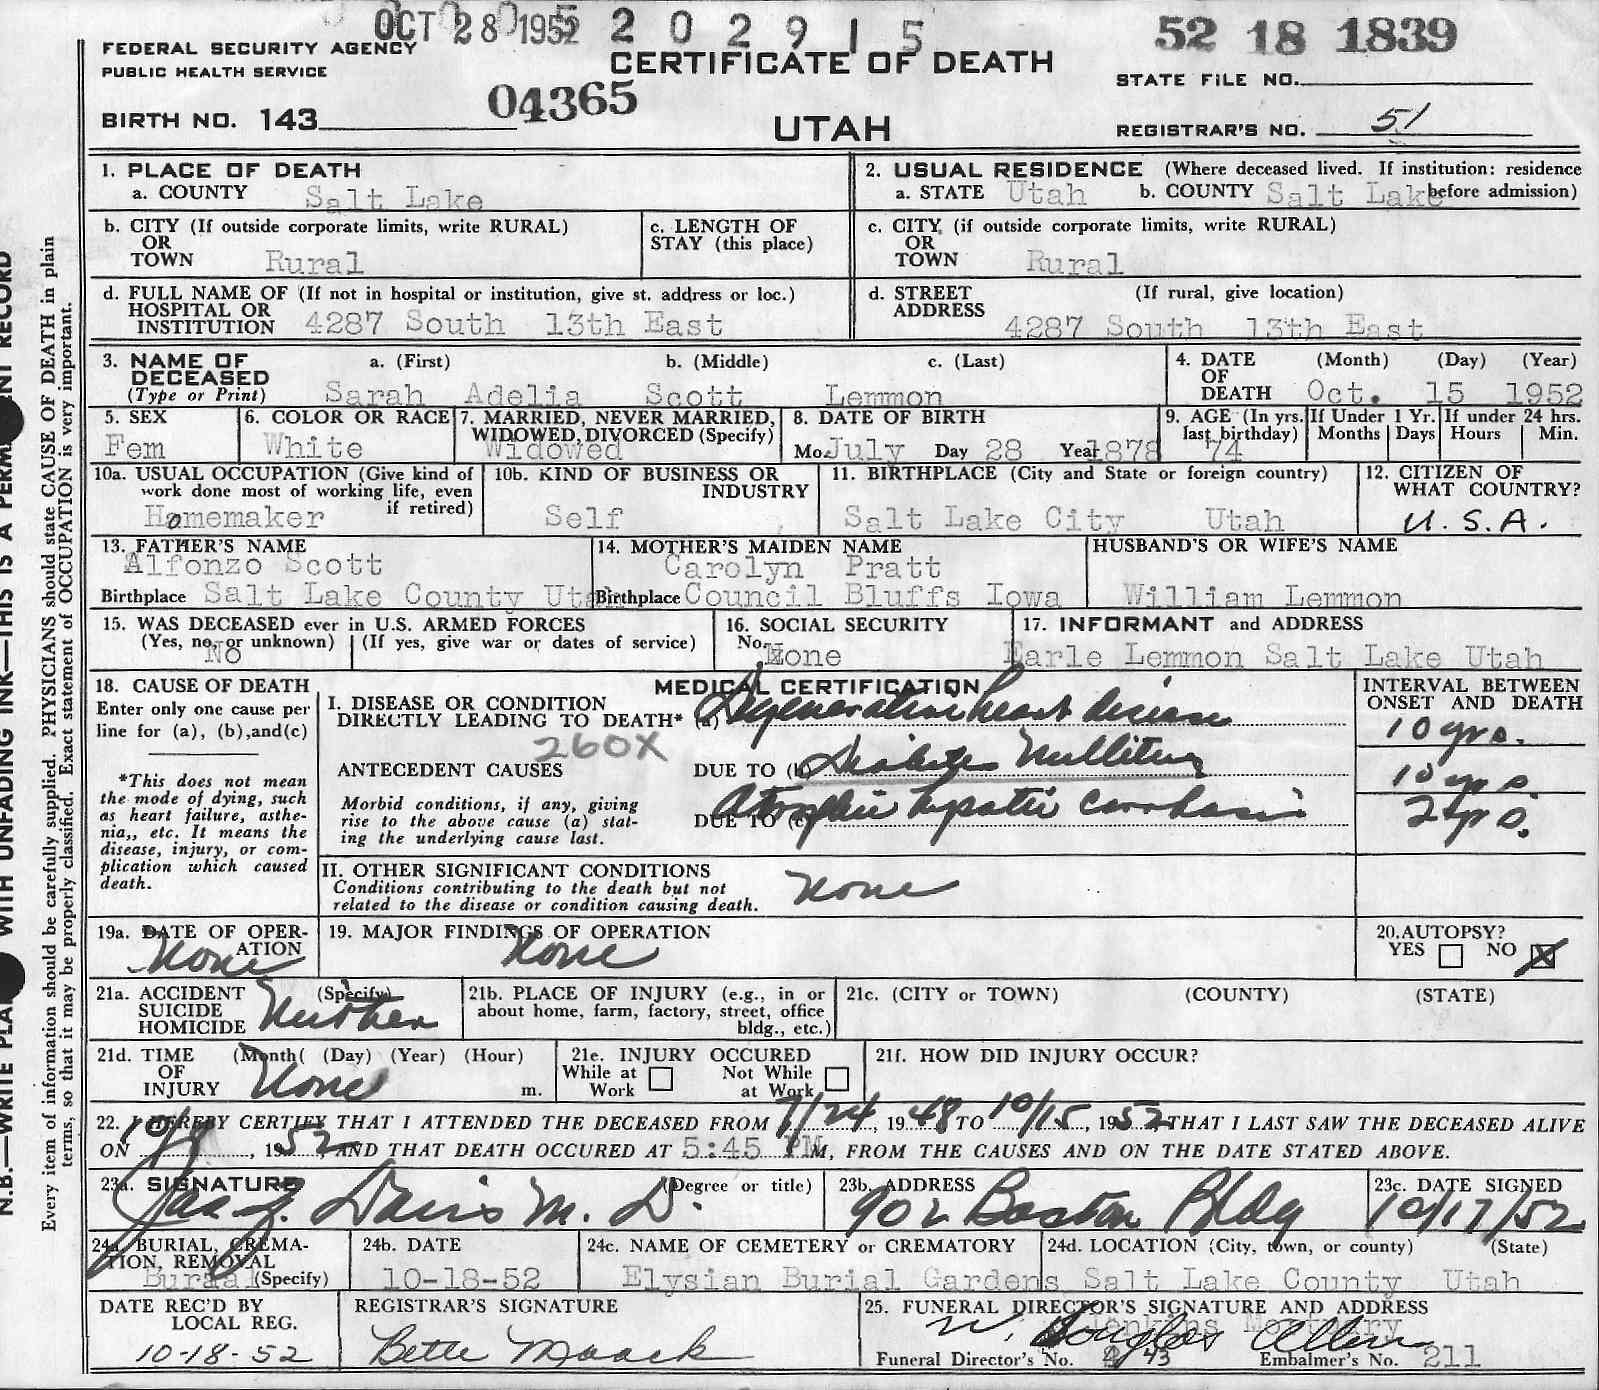 OCT 28 1952 2 0 2 9 1 5 52 18 1839
FEDERAL SECURITY AGENCY
PUBLIC HEALTH SERVICE
CERTIFICATE OF DEATH
STATE FILE NO.
BIRTH NO. 143 04365
UTAH
REGISTRAR'S NO. 51
1. PLACE OF DEATH
a. COUNTY Salt Lake
2. USUAL RESIDENCE (Where deceased lived. If institution: residence before admission)
a. STATE Utah b. COUNTY Salt Lake
b. CITY (If outside corporate limits, write RURAL)
OR
TOWN Rural
c. LENGTH OF
STAY (this place)
c. CITY (if outside corporate limits, write RURAL)
OR
TOWN Rural
d. FULL NAME OF (If not in hospital or institution, give st. address or loc.)
HOSPITAL OR
INSTITUTION 4287 South 13th East
d. STREET (If rural, give location)
ADDRESS
4287 South 13th East
3. NAME OF a. (First) b. (Middle) c. (Last)
DECEASED
(Type or Print) Sarah Adelia Scott Lemmon
4. DATE (Month) (Day) (Year)
OF
DEATH Oct. 15 1952
5. SEX
Fem
6. COLOR OR RACE
White
7. MARRIED, NEVER MARRIED,
WIDOWED, DIVORCED (Specify)
Widowed
8. DATE OF BIRTH
Mo. July Day 28 Year 1878
9. AGE (In yrs.
last birthday)
74
If Under 1 Yr.
Months Days
If under 24 hrs.
Hours Min.
10a. USUAL OCCUPATION (Give kind of
work done most of working life, even
if retired)
Homemaker
10b. KIND OF BUSINESS OR
INDUSTRY
Self
11. BIRTHPLACE (City and State or foreign country)
Salt Lake City Utah
12. CITIZEN OF
WHAT COUNTRY?
U. S. A.
13. FATHER'S NAME
Alfonzo Scott
Birthplace Salt Lake County Utah
14. MOTHER'S MAIDEN NAME
Carolyn Pratt
Birthplace Council Bluffs Iowa
HUSBAND'S OR WIFE'S NAME
William Lemmon
15. WAS DECEASED ever in U.S. ARMED FORCES
(Yes, no, or unknown) (If yes, give war or dates of service)
No
16. SOCIAL SECURITY
No. None
17. INFORMANT and ADDRESS
Earle Lemmon Salt Lake Utah
18. CAUSE OF DEATH
Enter only one cause per
line for (a), (b), and (c)
*This does not mean
the mode of dying, such
as heart failure, asthe-
nia,, etc. It means the
disease, injury, or com-
plication which caused
death.
MEDICAL CERTIFICATION
I. DISEASE OR CONDITION
DIRECTLY LEADING TO DEATH* (a) Degenerative heart disease
260X
ANTECEDENT CAUSES DUE TO (b) Diabetes Mellitus
Morbid conditions, if any, giving
rise to the above cause (a) stat-
ing the underlying cause last.
DUE TO (c) Atrophic hepatic
INTERVAL BETWEEN
ONSET AND DEATH
10 yrs.
10 yrs.
2 yrs.
II. OTHER SIGNIFICANT CONDITIONS
Conditions contributing to the death but not
related to the disease or condition causing death.
None
19a. DATE OF OPER-
ATION
None
19. MAJOR FINDINGS OF OPERATION
None
20. AUTOPSY?
YES NO X
21a. ACCIDENT (Specify)
SUICIDE
HOMICIDE Neither
21b. PLACE OF INJURY (e.g., in or
about home, farm, factory, street, office
bldg., etc.)
21c. (CITY or TOWN) (COUNTY) (STATE)
21d. TIME (Month( (Day) (Year) (Hour)
OF
INJURY None m.
21e. INJURY OCCURED
While at Not While
Work at Work
21f. HOW DID INJURY OCCUR?
22. I HEREBY CERTIFY THAT I ATTENDED THE DECEASED FROM 7/24, 1948 TO 10/15, 1952 THAT I LAST SAW THE DECEASED ALIVE
ON 10/8, 1952, AND THAT DEATH OCCURED AT 5:45 PM, FROM THE CAUSES AND ON THE DATE STATED ABOVE.
23a. SIGNATURE (Degree or title)
Jas. J. Davis M. D.
23b. ADDRESS
902 Boston Bldg
23c. DATE SIGNED
10/17/52
24a. BURIAL, CREMA-
TION, REMOVAL
Burial (Specify)
24b. DATE
10-18-52
24c. NAME OF CEMETERY or CREMATORY
Elysian Burial Gardens
24d. LOCATION (City, town, or county) (State)
Salt Lake County Utah
DATE REC'D BY
LOCAL REG.
10-18-52
REGISTRAR'S SIGNATURE
Bette Maack
25. FUNERAL DIRECTOR'S SIGNATURE AND ADDRESS
Jenkins Mortuary
W. Douglas Allen
Funeral Director's No. 43 Embalmer's No. 211
N.B.—WRITE PLAINLY WITH UNFADING INK—THIS IS A PERMANENT RECORD
Every item of information should be carefully supplied. PHYSICIANS should state CAUSE OF DEATH in plain
terms, so that it may be properly classified. Exact statement of OCCUPATION is very important.